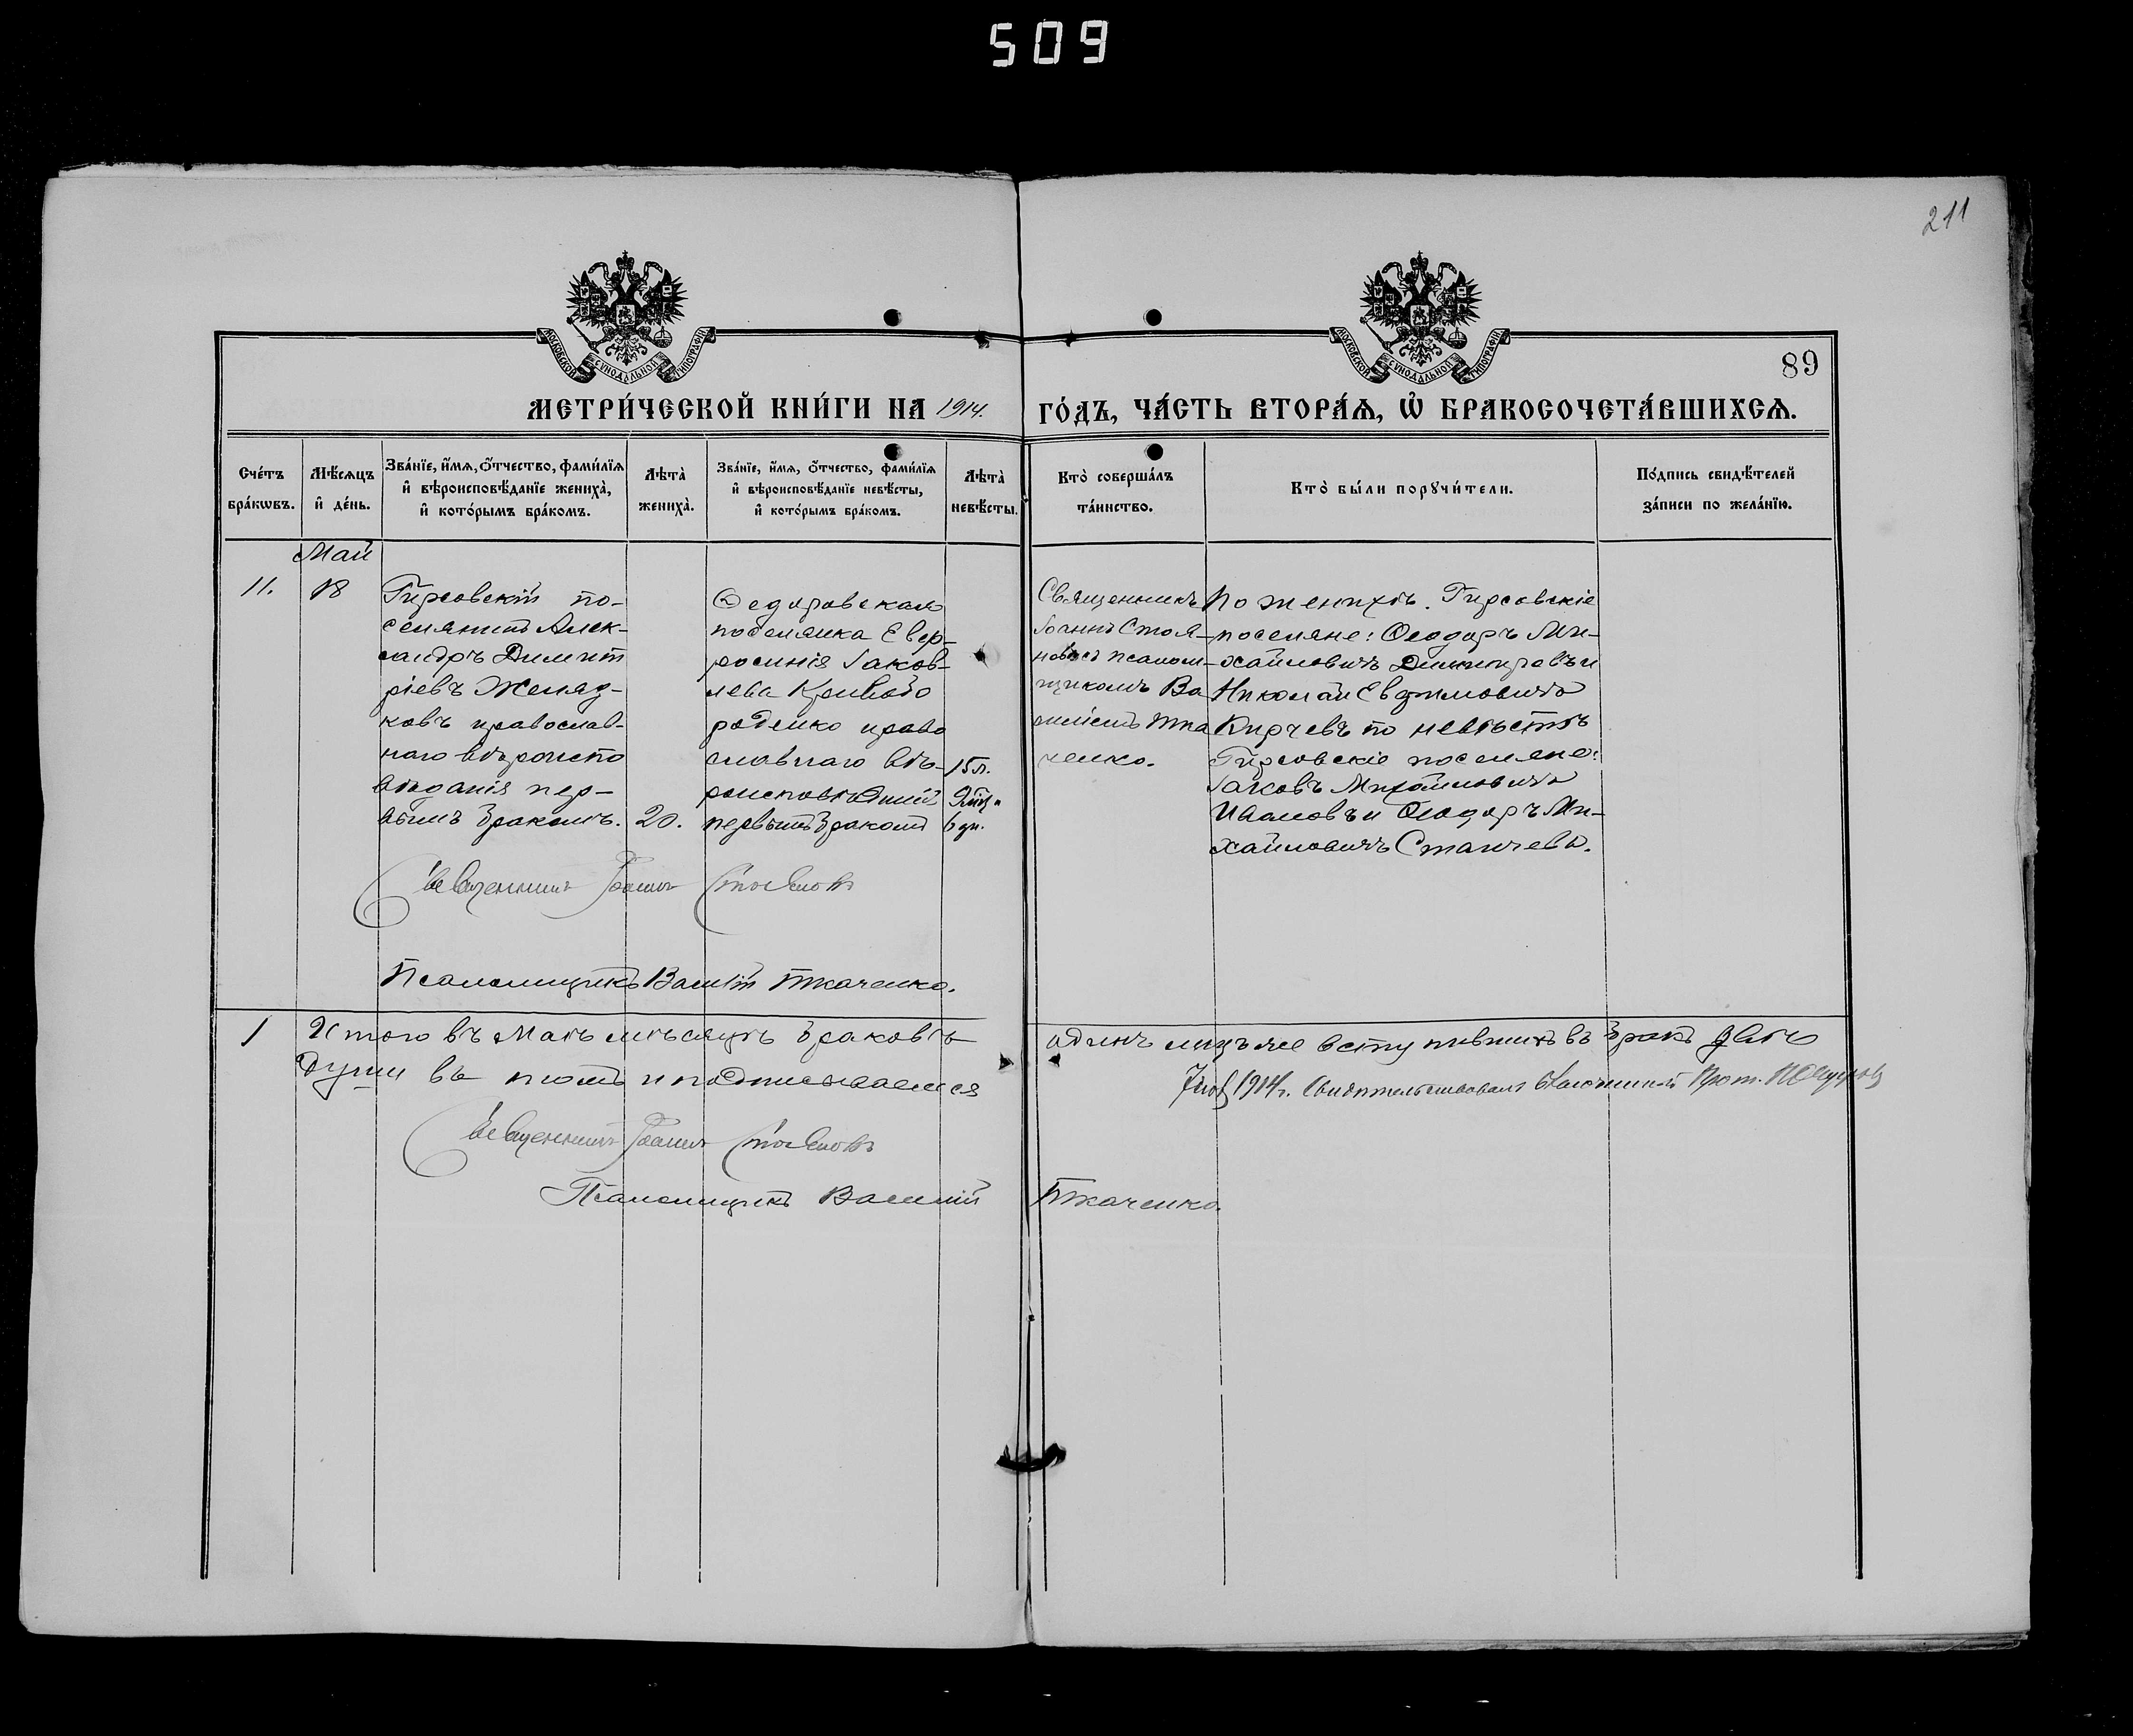 509
211
89
МОСКОВСКОЙ СУНОДАЛЬНОЙ ТИПОГРАФІИ
МОСКОВСКОЙ СУНОДАЛЬНОЙ ТИПОГРАФІИ
МЕТРИ́ЧЕСКОЙ КНИ́ГИ НА 1914. ГО́ДЪ, ЧА́СТЬ ВТОРА́Ѧ, Ѡ҆ БРАКОСОЧЕТА́ВШИХСѦ.
Сче́тъ
бра́кѡвъ.
Мѣ́сѧцъ
и҆ де́нь.
Зва́нїе, и҆́мѧ, ѻ҆́тчество, фами́лїѧ
и҆ вѣроисповѣ́данїе жениха̀,
и҆ кото́рымъ бра́комъ.
Лѣта̀
жениха̀.
Зва́нїе, и҆́мѧ, ѻ҆́тчество, фами́лїѧ
и҆ вѣроисповѣ́данїе невѣ́сты,
и҆ кото́рымъ бра́комъ.
Лѣта̀
невѣ́сты.
Кто̀ соверша́лъ
та́инство.
Кто̀ бы́ли порꙋчи́тели.
По́дпись свидѣ́телей
за́писи по жела́нїю.
Май
11.
18
Гирсовскій по-
селянинъ Алек-
сандръ Димит
ріевъ Желяз-
ковъ православ-
наго вѣроиспо
вѣданія пер-
вымъ бракомъ.
20.
Ѳедоровская
поселянка Евф-
росинія Іаков-
лева Кривобо
роденко право
славнаго вѣ-
роисповѣданія
первымъ бракомъ
15 л.
9 мѣц.
6 дн.
Священникъ
Іоаннъ Стоя-
новъ съ псалом-
щикомъ Ва
силіемъ Тка
ченко.
По женихѣ: Гирсовскіе
поселяне: Ѳеодоръ Ми-
хайловичъ Димитровъ и
Николай Евфимовичъ
Кирчевъ по невѣстѣ
Гирсовскіе поселяне:
Іаковъ Михайловичъ
Ивановъ и Ѳеодоръ Ми-
хайловичъ Станчевъ.
Священникъ Іоаннъ Стояновъ
Псаломщикъ Василій Ткаченко.
1 Итого въ Маѣ мѣсяцѣ браковъ одинъ лицъ же вступившихъ въ бракъ двѣ
души въ чемъ и подписываемся
1914 г. Свидѣтельствовалъ Благочинный Прот.
Священникъ Іоаннъ Стояновъ
Псаломщикъ Василій Ткаченко.